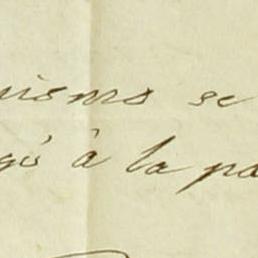 nisms se
gés à la pa